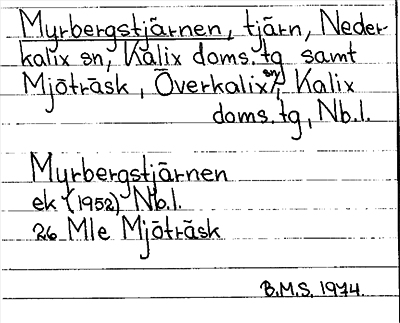 Myrbergstjärnen, tjärn, Neder-
kalix sn, Kalix doms.tg samt
Mjöträsk, Överkalix sn, Kalix
doms.tg, Nb.l.
Myrbergstjärnen
ek (1952) Nb.l.
26 Mle Mjöträsk
B.M.S. 1974.